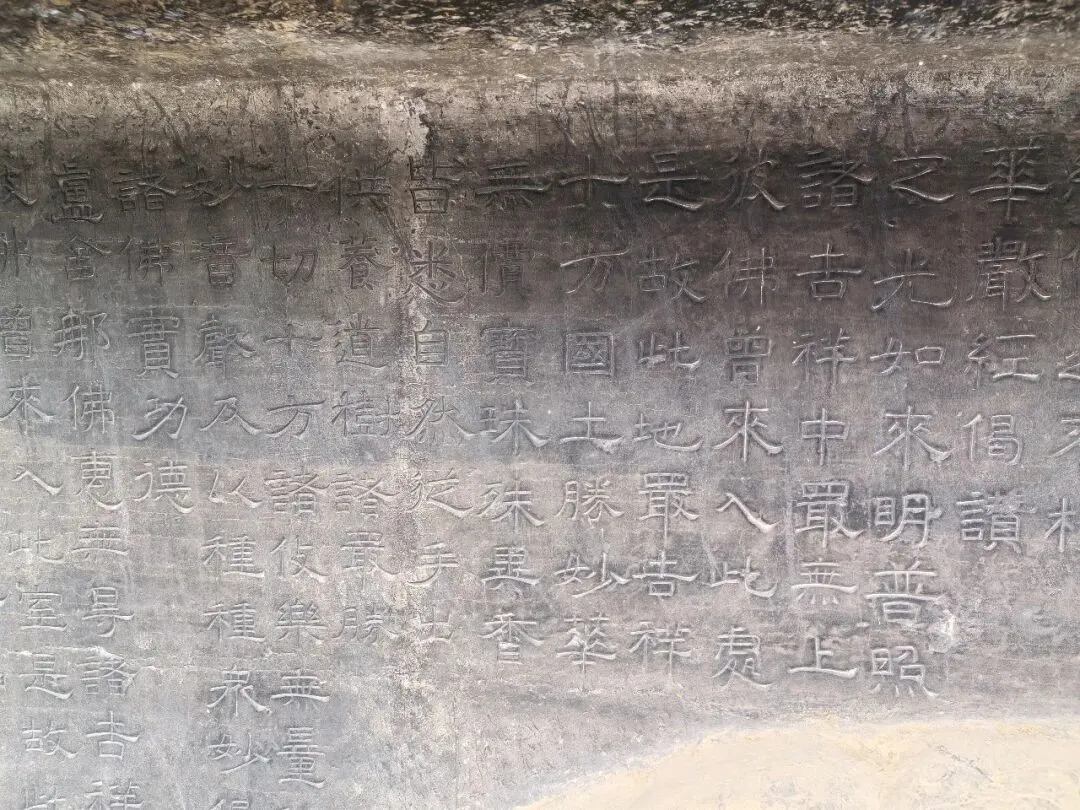 華嚴經偈讚
之光如來明普照
諸吉祥中最無上
彼佛曾來入此處
是故此地最吉祥
十方國土勝妙華
無價寶珠殊異香
皆悉自然從手出
供養道樹諸最勝
一切十方諸伎樂無量
妙音聲及以種種衆妙
諸佛實功德
盧舍那佛惠無㝵諸吉祥
彼佛曾來入此室是故此